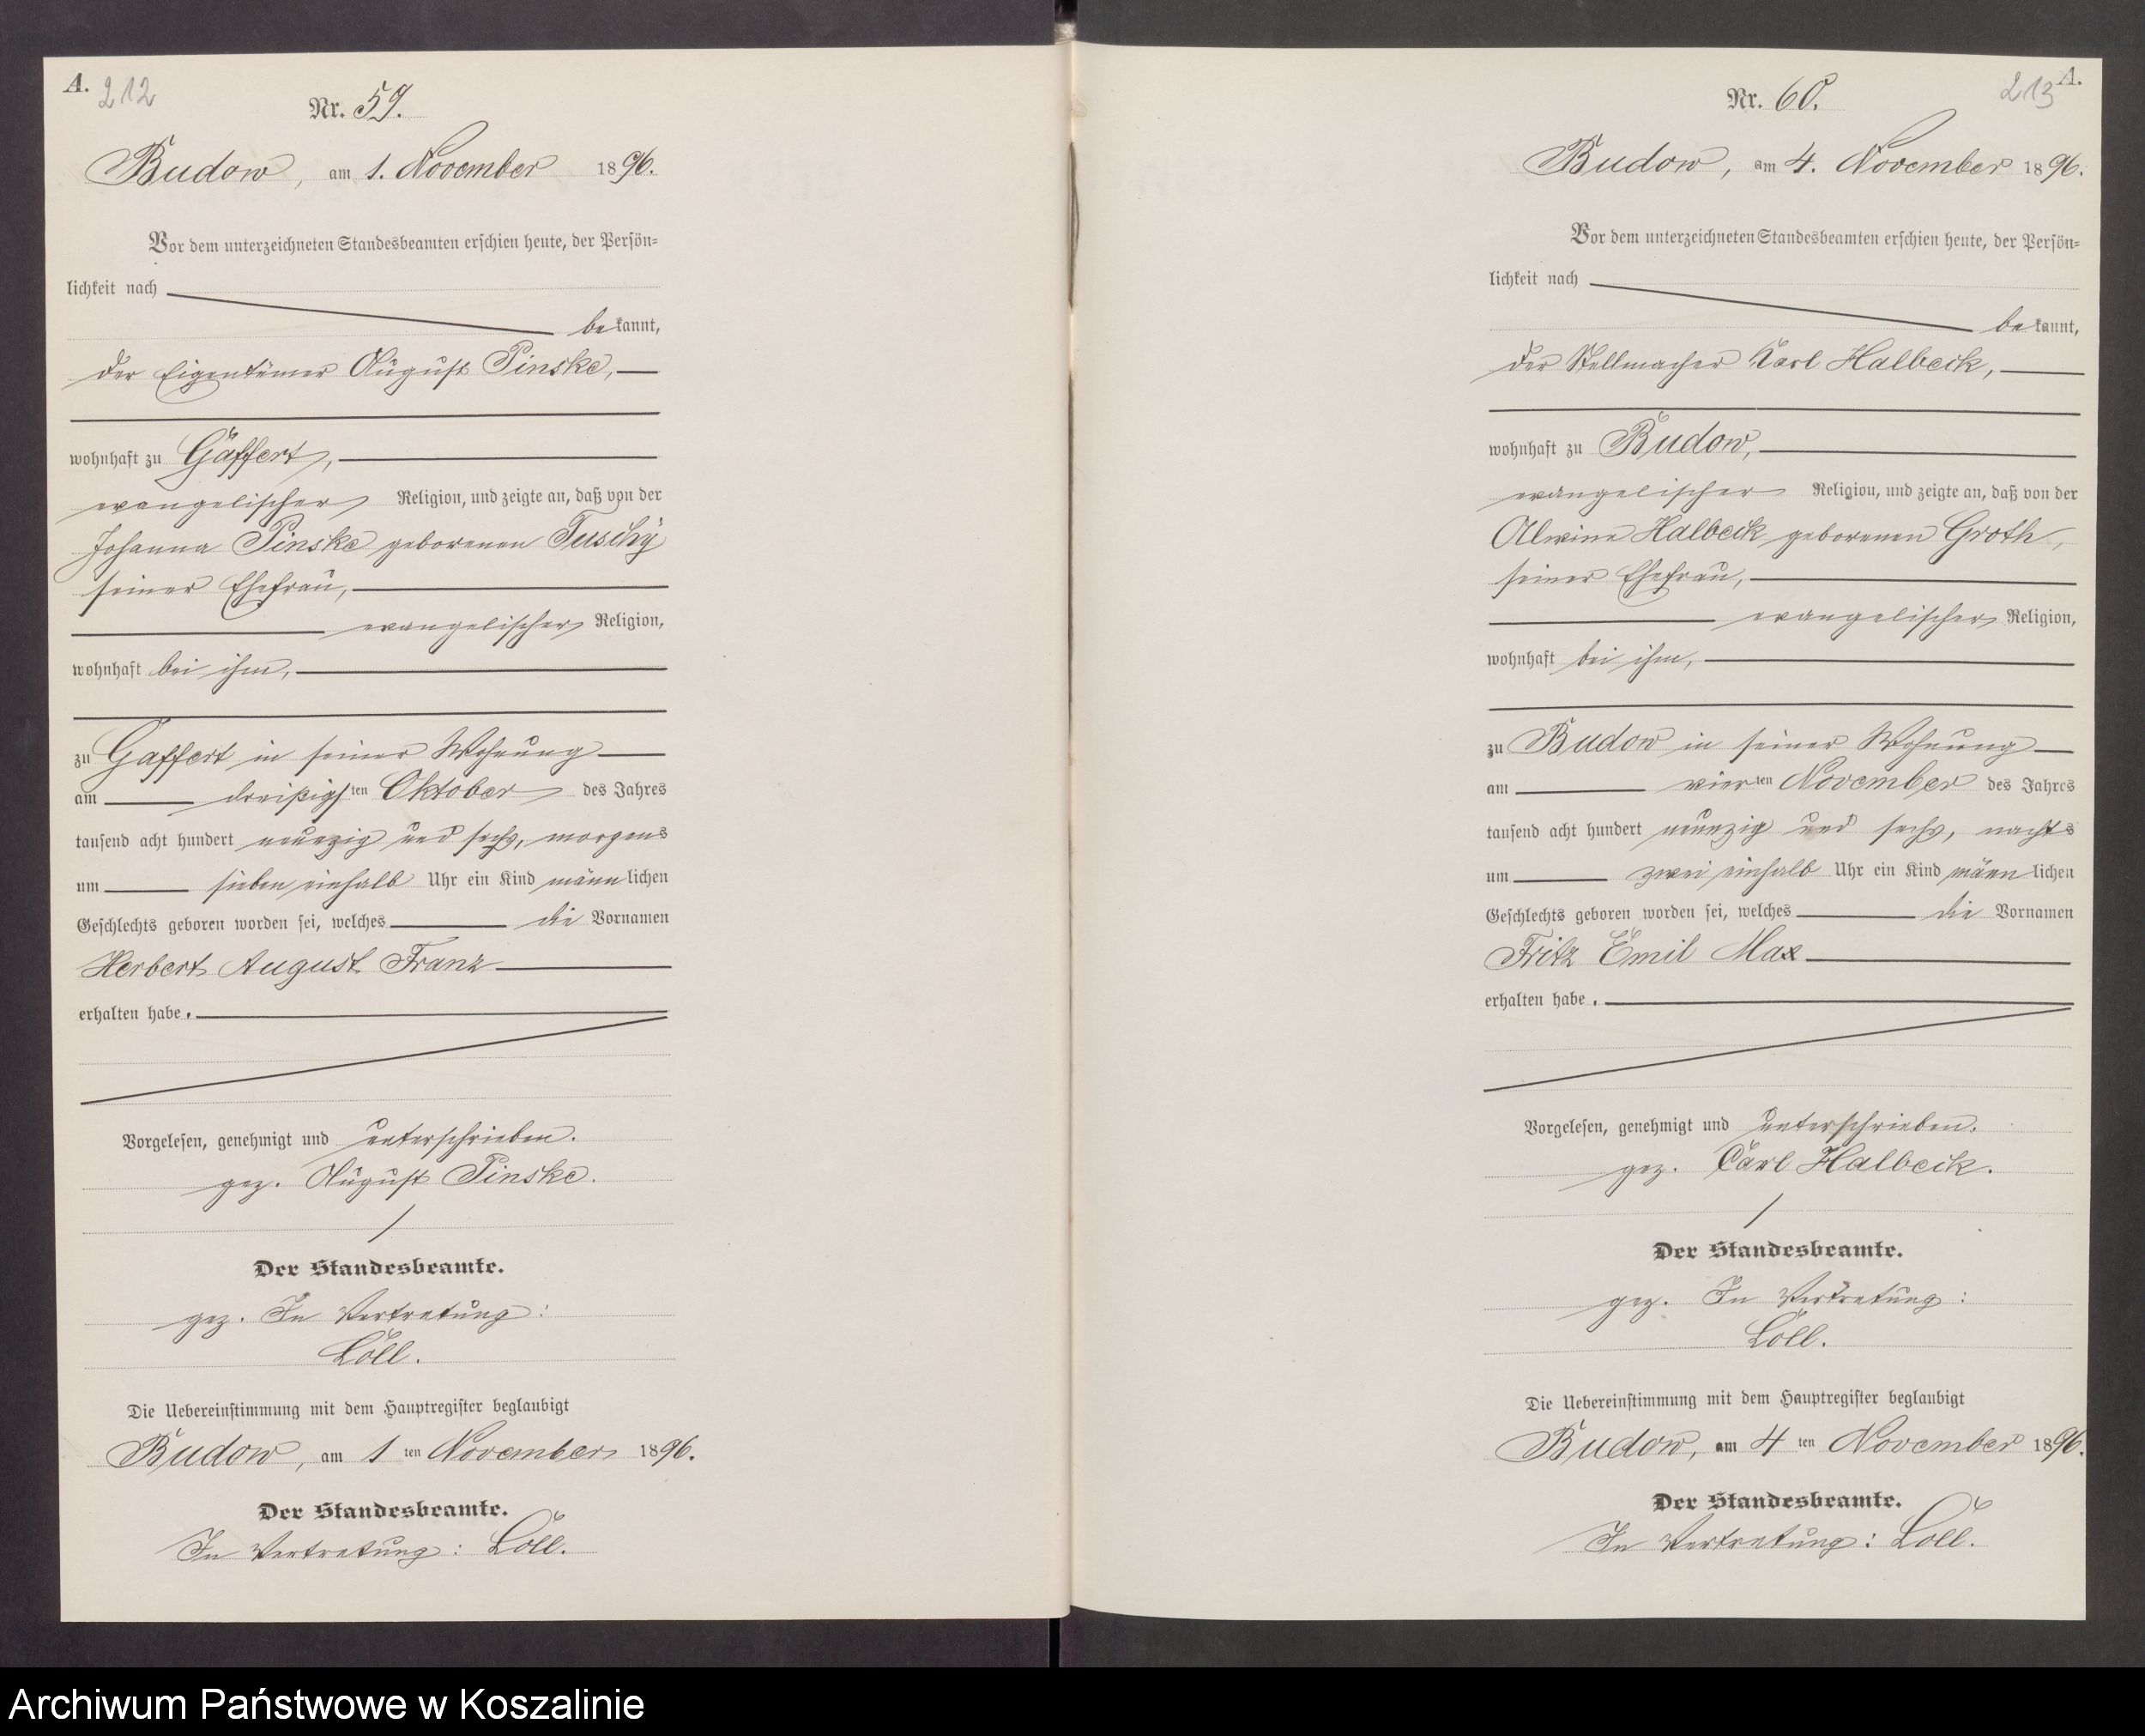 A.
212
Nr. 59.
Budow, am 1. November 1896.
Vor dem unterzeichneten Standesbeamten erschien heute, der Persön=
lichkeit nach
bekannt,
der Eigentümer August Pinske,
wohnhaft zu Gaffert,
evangelischer Religion, und zeigte an, daß von der
Johanna Pinske geborenen Tuschy
seiner Ehefrau,
evangelischer Religion,
wohnhaft bei ihm,
zu Gaffert in seiner Wohnung
am dreißigsten Oktober des Jahres
tausend acht hundert neunzig und sechs, morgens
um sieben einhalb Uhr ein Kind männlichen
Geschlechts geboren worden sei, welches die Vornamen
Herbert August Franz
erhalten habe.
Vorgelesen, genehmigt und unterschrieben.
gez. August Pinske.
Der Standesbeamte.
gez. In Vertretung:
Löll.
Die Uebereinstimmung mit dem Hauptregister beglaubigt
Budow, am 1 ten November 1896.
Der Standesbeamte.
In Vertretung: Löll.
A.
213
Nr. 60.
Budow, am 4. November 1896.
Vor dem unterzeichneten Standesbeamten erschien heute, der Persön=
lichkeit nach
bekannt,
der Stellmacher Karl Halbeck,
wohnhaft zu Budow,
evangelischer Religion, und zeigte an, daß von der
Alwine Halbeck geborenen Groth,
seiner Ehefrau,
evangelischer Religion,
wohnhaft bei ihm,
zu Budow in seiner Wohnung
am vierten November des Jahres
tausend acht hundert neunzig und sechs, nachts
um zwei einhalb Uhr ein Kind männlichen
Geschlechts geboren worden sei, welches die Vornamen
Fritz Emil Max
erhalten habe.
Vorgelesen, genehmigt und unterschrieben.
gez. Carl Halbeck.
Der Standesbeamte.
gez. In Vertretung:
Löll.
Die Uebereinstimmung mit dem Hauptregister beglaubigt
Budow, am 4 ten November 1896.
Der Standesbeamte.
In Vertretung: Löll.
Archiwum Państwowe w Koszalinie